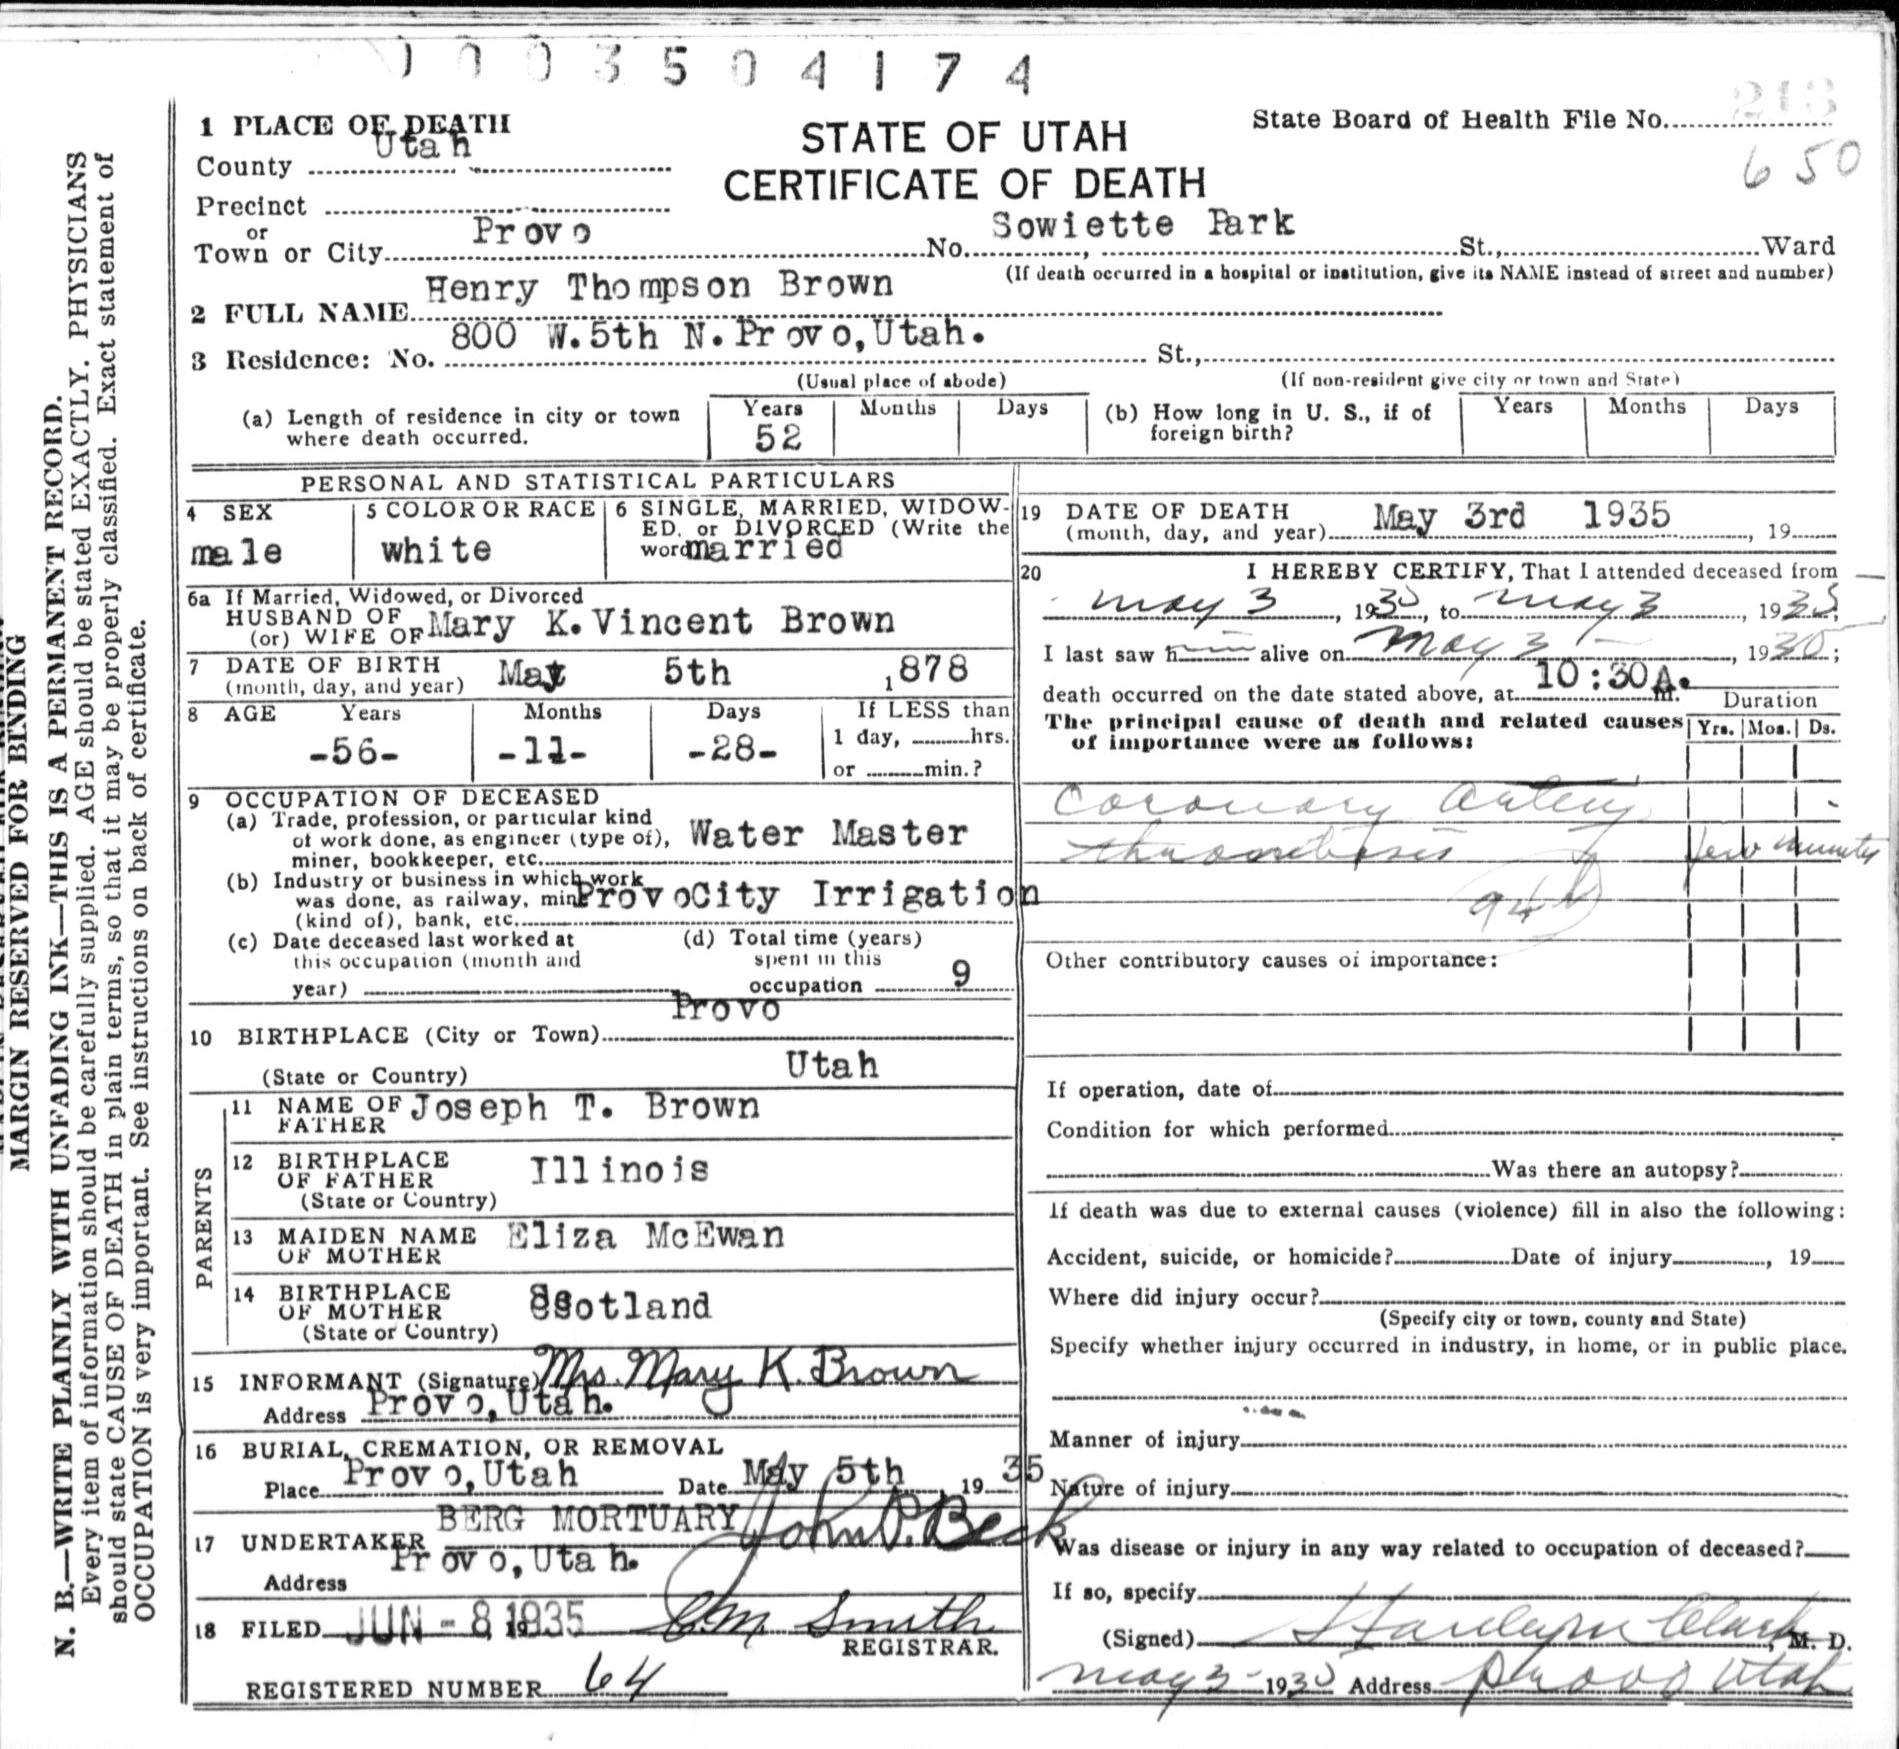 1003504174
1 PLACE OF DEATH
STATE OF UTAH
CERTIFICATE OF DEATH
State Board of Health File No. 213
650
County Utah
Precinct
or
Town or City Provo No. Sowiette Park St., Ward
(If death occurred in a hospital or institution, give its NAME instead of street and number)
2 FULL NAME Henry Thompson Brown
3 Residence: No. 800 W.5th N. Provo, Utah. St.,
(Usual place of abode) (If non-resident give city or town and State)
(a) Length of residence in city or town where death occurred. Years 52 Months Days
(b) How long in U. S., if of foreign birth? Years Months Days
PERSONAL AND STATISTICAL PARTICULARS
4 SEX male
5 COLOR OR RACE white
6 SINGLE, MARRIED, WIDOW-
ED, or DIVORCED (Write the
word married
6a If Married, Widowed, or Divorced
HUSBAND OF
(or) WIFE OF Mary K. Vincent Brown
7 DATE OF BIRTH
(month, day, and year) May 5th 1878
8 AGE Years Months Days If LESS than
-56- -11- -28- 1 day, hrs.
or min.?
9 OCCUPATION OF DECEASED
(a) Trade, profession, or particular kind
of work done, as engineer (type of), Water Master
miner, bookkeeper, etc.
(b) Industry or business in which work
was done, as railway, min Provo City Irrigation
(kind of), bank, etc.
(c) Date deceased last worked at
this occupation (month and
year)
(d) Total time (years)
spent in this
occupation 9
10 BIRTHPLACE (City or Town) Provo
(State or Country) Utah
PARENTS
11 NAME OF
FATHER Joseph T. Brown
12 BIRTHPLACE
OF FATHER Illinois
(State or Country)
13 MAIDEN NAME
OF MOTHER Eliza McEwan
14 BIRTHPLACE
OF MOTHER Scotland
(State or Country)
15 INFORMANT (Signature) Mrs. Mary K. Brown
Address Provo, Utah.
16 BURIAL, CREMATION, OR REMOVAL
Place Provo, Utah Date May 5th, 1935
17 UNDERTAKER BERG MORTUARY John P. Beck
Address Provo, Utah.
18 FILED JUN - 8 1935 C M Smith
REGISTRAR.
REGISTERED NUMBER 64
19 DATE OF DEATH
(month, day, and year) May 3rd 1935, 19
20 I HEREBY CERTIFY, That I attended deceased from
May 3, 1935, to May 3, 1935;
I last saw h alive on May 3, 1935;
death occurred on the date stated above, at 10:30A. m.
The principal cause of death and related causes
of importance were as follows:
Duration
Yrs. Mos. Ds.
Coronary artery
thrombosis few minutes
94b
Other contributory causes of importance:
If operation, date of
Condition for which performed
Was there an autopsy?
If death was due to external causes (violence) fill in also the following:
Accident, suicide, or homicide? Date of injury, 19
Where did injury occur?
(Specify city or town, county and State)
Specify whether injury occurred in industry, in home, or in public place.
Manner of injury
Nature of injury
Was disease or injury in any way related to occupation of deceased?
If so, specify
(Signed) Clark, M. D.
May 3 1935 Address Provo Utah
MARGIN RESERVED FOR BINDING
N. B.—WRITE PLAINLY WITH UNFADING INK—THIS IS A PERMANENT RECORD.
Every item of information should be carefully supplied. AGE should be stated EXACTLY. PHYSICIANS
should state CAUSE OF DEATH in plain terms, so that it may be properly classified. Exact statement of
OCCUPATION is very important. See instructions on back of certificate.